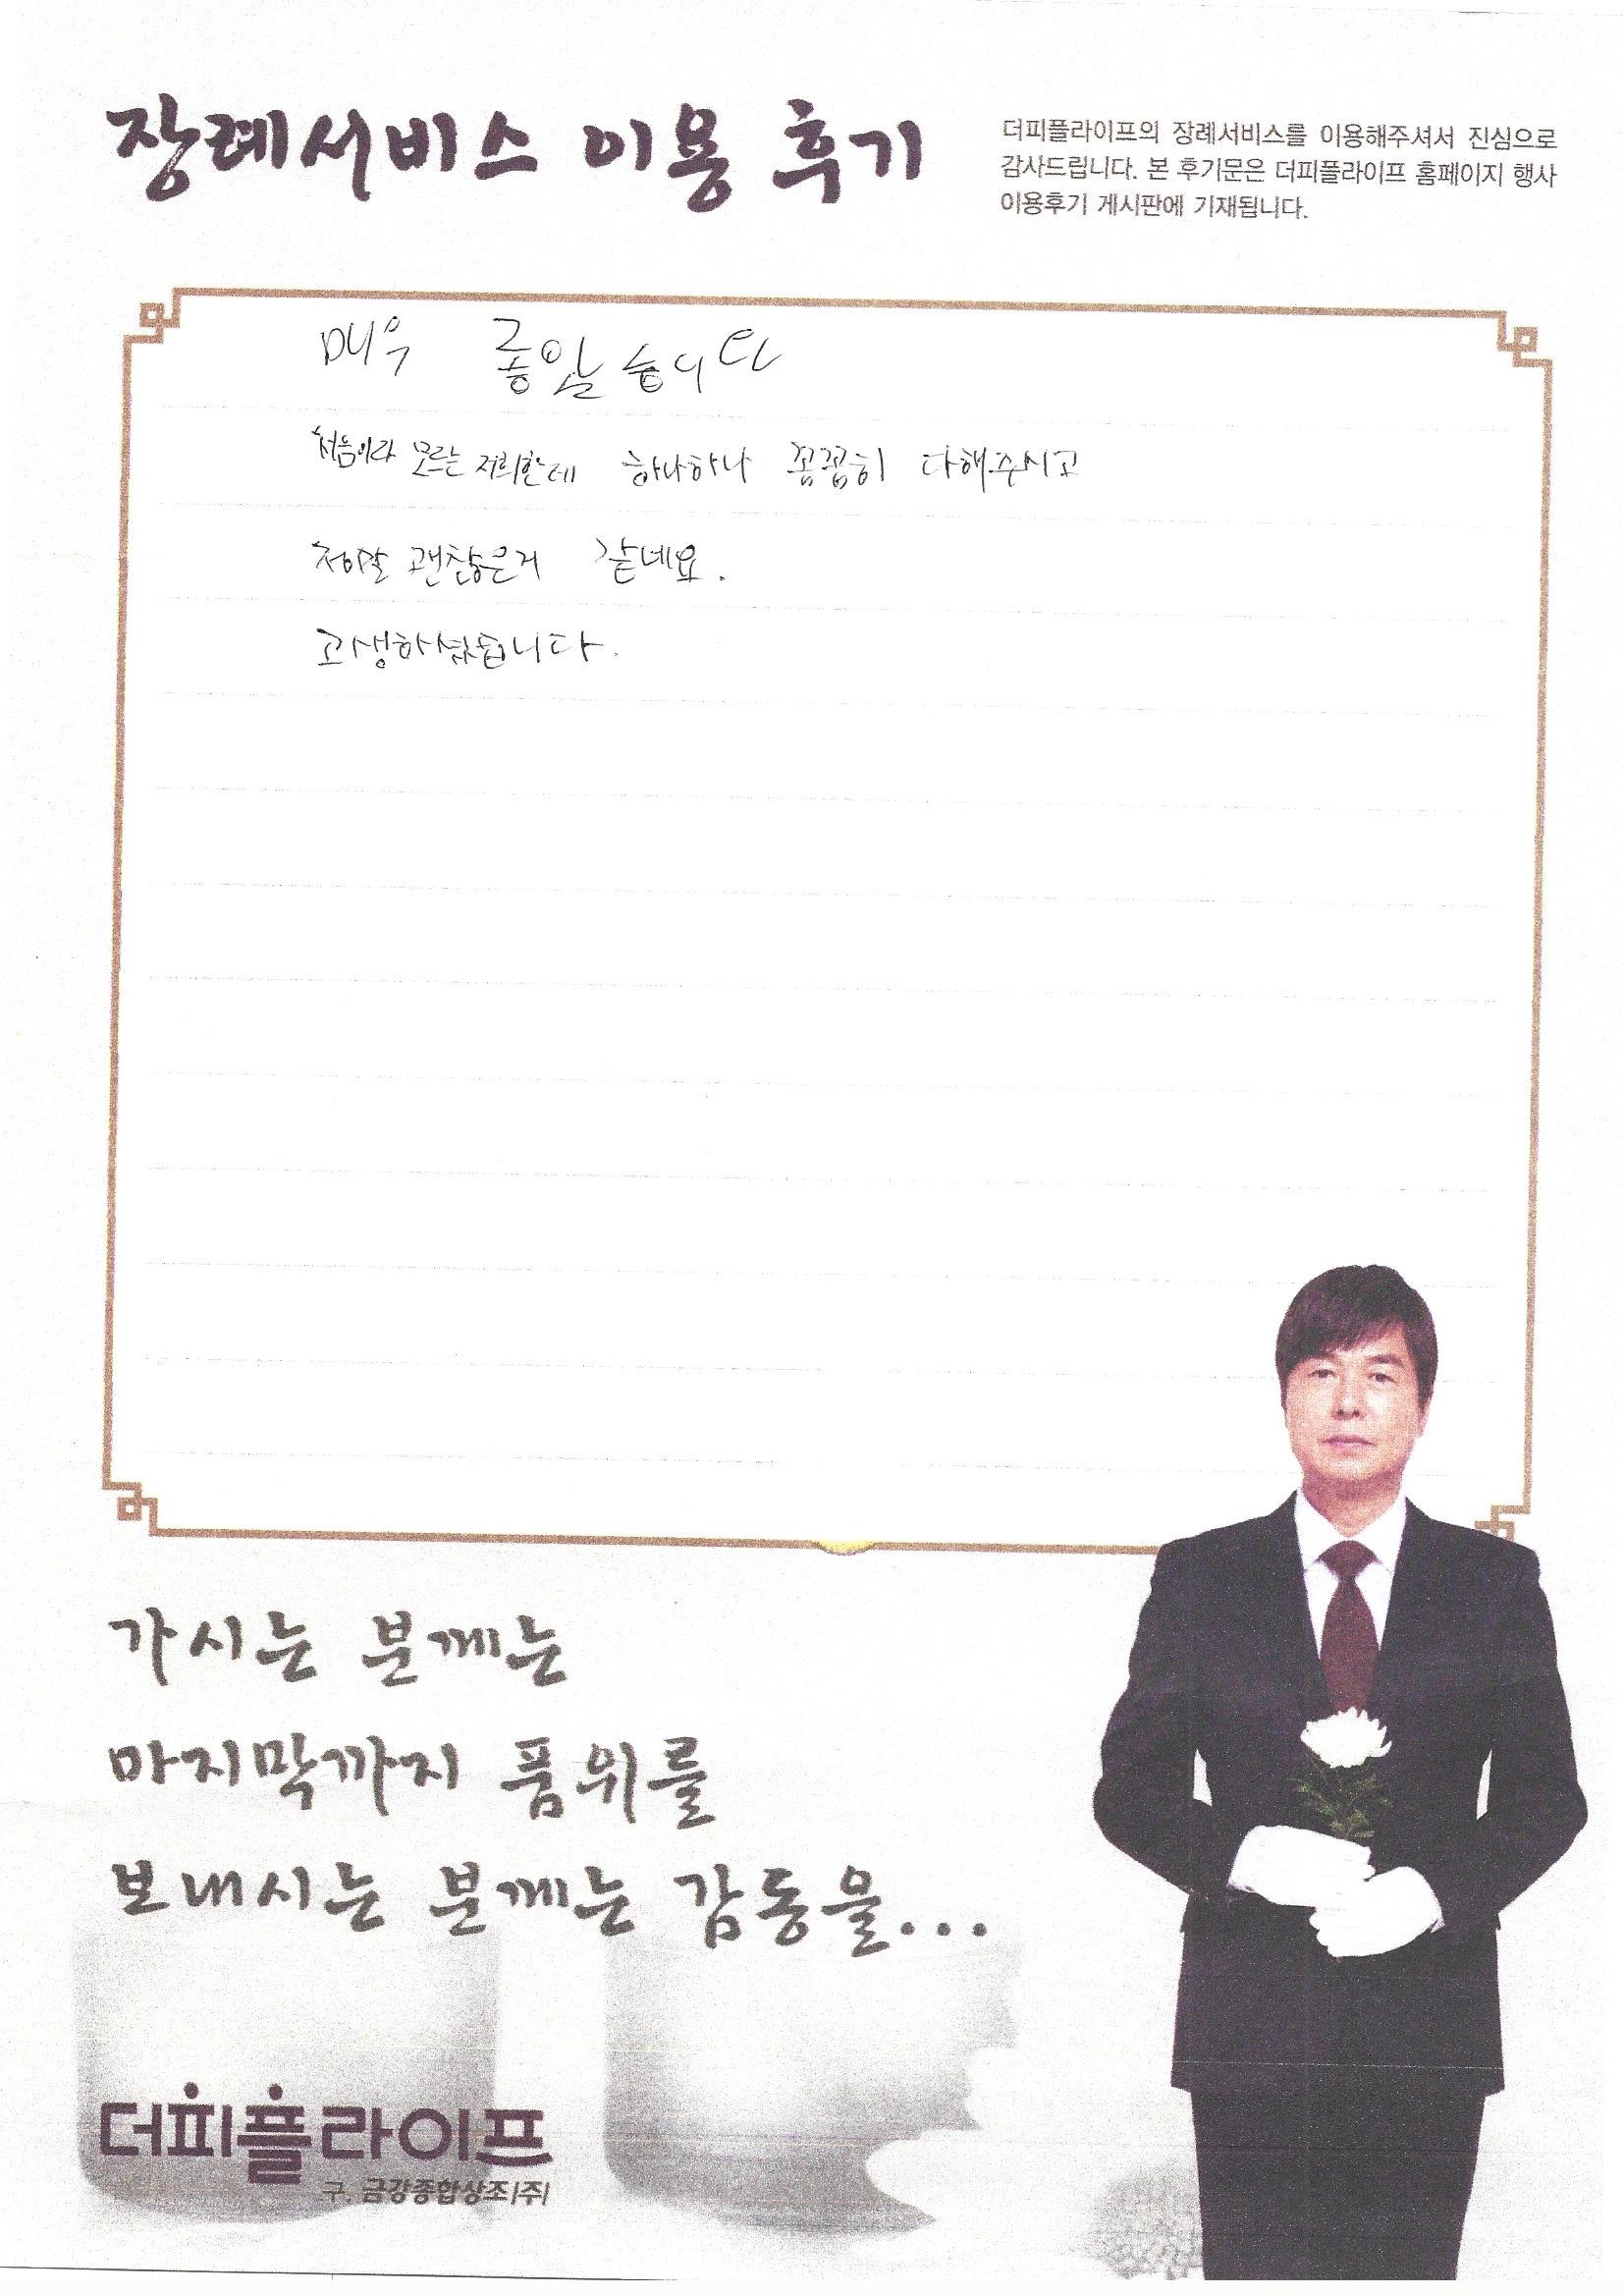 장례서비스 이용 후기
더피플라이프의 장례서비스를 이용해주셔서 진심으로
감사드립니다. 본 후기문은 더피플라이프 홈페이지 행사
이용후기 게시판에 기재됩니다.
매우 좋았습니다
처음이라 모르는 저희한테 하나하나 꼼꼼히 다해주시고
정말 괜찮은거 같네요.
고생하셨습니다.
가시는 분께는
마지막까지 품위를
보내시는 분께는 감동을...
더피플라이프
구. 금강종합상조(주)